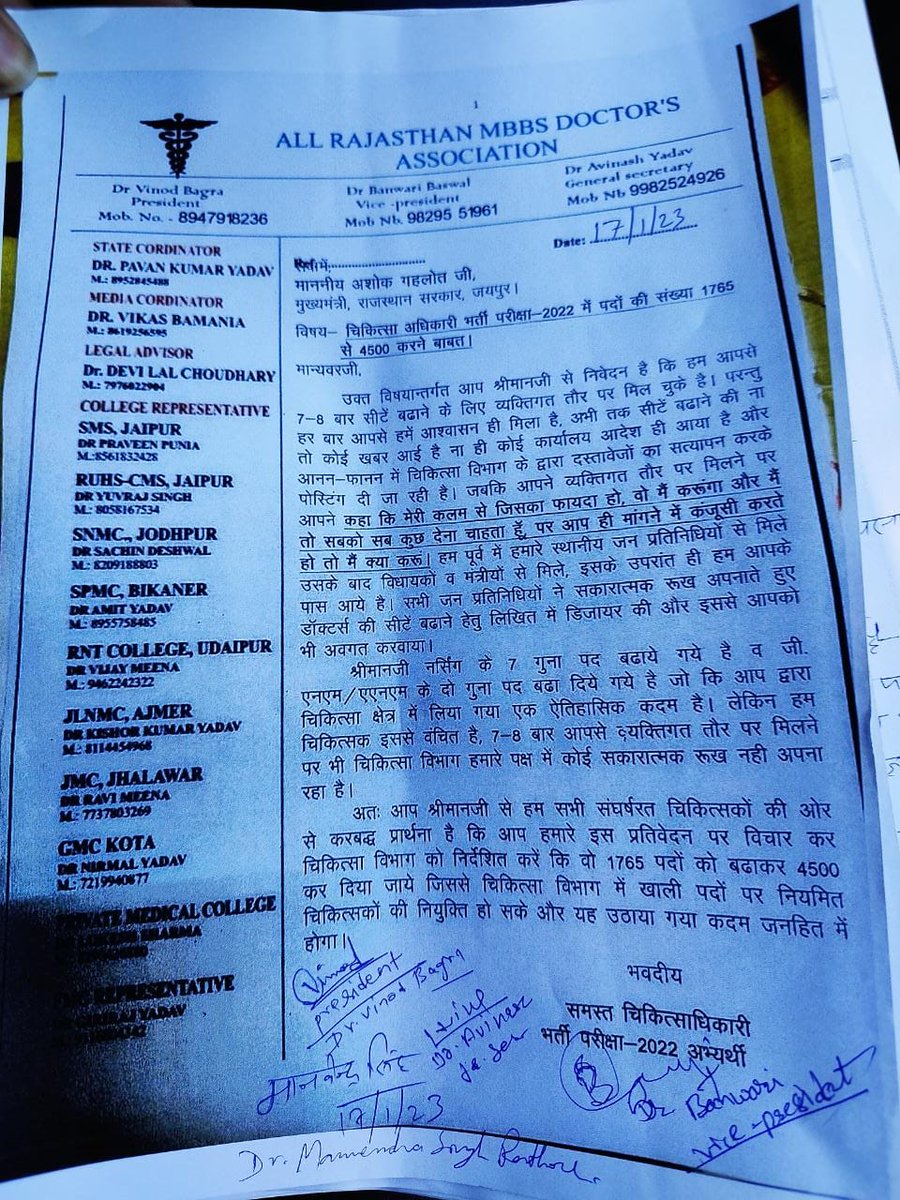 1
ALL RAJASTHAN MBBS DOCTOR'S
ASSOCIATION
Dr Vinod Bagra
President
Mob. No. - 8947918236
Dr Banwari Baswal
Vice -president
Mob Nb. 98295 51961
Dr Avinash Yadav
General secretary
Mob Nb 9982524926
Date: 17/1/23
STATE CORDINATOR
DR. PAVAN KUMAR YADAV
M.: 8952845488
MEDIA CORDINATOR
DR. VIKAS BAMANIA
M.: 8619256595
LEGAL ADVISOR
Dr. DEVI LAL CHOUDHARY
M.: 7976822904
COLLEGE REPRESENTATIVE
SMS, JAIPUR
DR PRAVEEN PUNIA
M.:8561832428
RUHS-CMS, JAIPUR
DR YUVRAJ SINGH
M.: 8058167534
SNMC,, JODHPUR
DR SACHIN DESHWAL
M.: 8209188803
SPMC, BIKANER
DR AMIT YADAV
M.: 8955758485
RNT COLLEGE, UDAIPUR
DR VIJAY MEENA
M.: 9462242322
JLNMC, AJMER
DR KISHOR KUMAR YADAV
M.: 8114454968
JMC, JHALAWAR
DR RAVI MEENA
M.: 7737803269
GMC KOTA
DR NIRMAL YADAV
M.: 7219940877
PRIVATE MEDICAL COLLEGE
SHARMA
REPRESENTATIVE
YADAV
माननीय अशोक गहलोत जी,
मुख्यमंत्री, राजस्थान सरकार, जयपुर।
विषय– चिकित्सा अधिकारी भर्ती परीक्षा–2022 में पदों की संख्या 1765
से 4500 करने बाबत।
मान्यवरजी,
उक्त विषयान्तर्गत आप श्रीमानजी से निवेदन है कि हम आपसे
7-8 बार सीटें बढाने के लिए व्यक्तिगत तौर पर मिल चुके है। परन्तु
हर बार आपसे हमें आश्वासन ही मिला है, अभी तक सीटें बढाने की ना
तो कोई खबर आई है ना ही कोई कार्यालय आदेश ही आया है और
आनन-फानन में चिकित्सा विभाग के द्वारा दस्तावेजों का सत्यापन करके
पोस्टिंग दी जा रही है। जबकि आपने व्यक्तिगत तौर पर मिलने पर
आपने कहा कि मेरी कलम से जिसका फायदा हो, वो मैं करूंगा और मैं
तो सबको सब कुछ देना चाहता हूँ, पर आप ही मांगने में कंजूसी करते
हो तो मैं क्या करू। हम पूर्व में हमारे स्थानीय जन प्रतिनिधियों से मिले
उसके बाद विधायकों व मंत्रीयों से मिले, इसके उपरांत ही हम आपके
पास आये है। सभी जन प्रतिनिधियों ने सकारात्मक रूख अपनाते हुए
डॉक्टर्स की सीटें बढाने हेतु लिखित में डिजायर की और इससे आपको
भी अवगत करवाया।
श्रीमानजी नर्सिंग के 7 गुना पद बढाये गये है व जी.
एनएम/एएनएम के दो गुना पद बढा दिये गये है जो कि आप द्वारा
चिकित्सा क्षेत्र में लिया गया एक ऐतिहासिक कदम है। लेकिन हम
चिकित्सक इससे वंचित है, 7-8 बार आपसे व्यक्तिगत तौर पर मिलने
पर भी चिकित्सा विभाग हमारे पक्ष में कोई सकारात्मक रूख नही अपना
रहा है।
अतः आप श्रीमानजी से हम सभी संघर्षरत चिकित्सकों की ओर
से करबद्ध प्रार्थना है कि आप हमारे इस प्रतिवेदन पर विचार कर
चिकित्सा विभाग को निर्देशित करें कि वो 1765 पदों को बढाकर 4500
कर दिया जाये जिससे चिकित्सा विभाग में खाली पदों पर नियमित
चिकित्सकों की नियुक्ति हो सके और यह उठाया गया कदम जनहित में
होगा।
भवदीय
समस्त चिकित्साधिकारी
भर्ती परीक्षा–2022 अभ्यर्थी
Vinod
president
Dr. Vinod Bagra
Dr. Avinash
मानवेन्द्र सिंह
17/1/23
Dr. Manvendra Singh Rathore.
Dr Banwari
vice-president